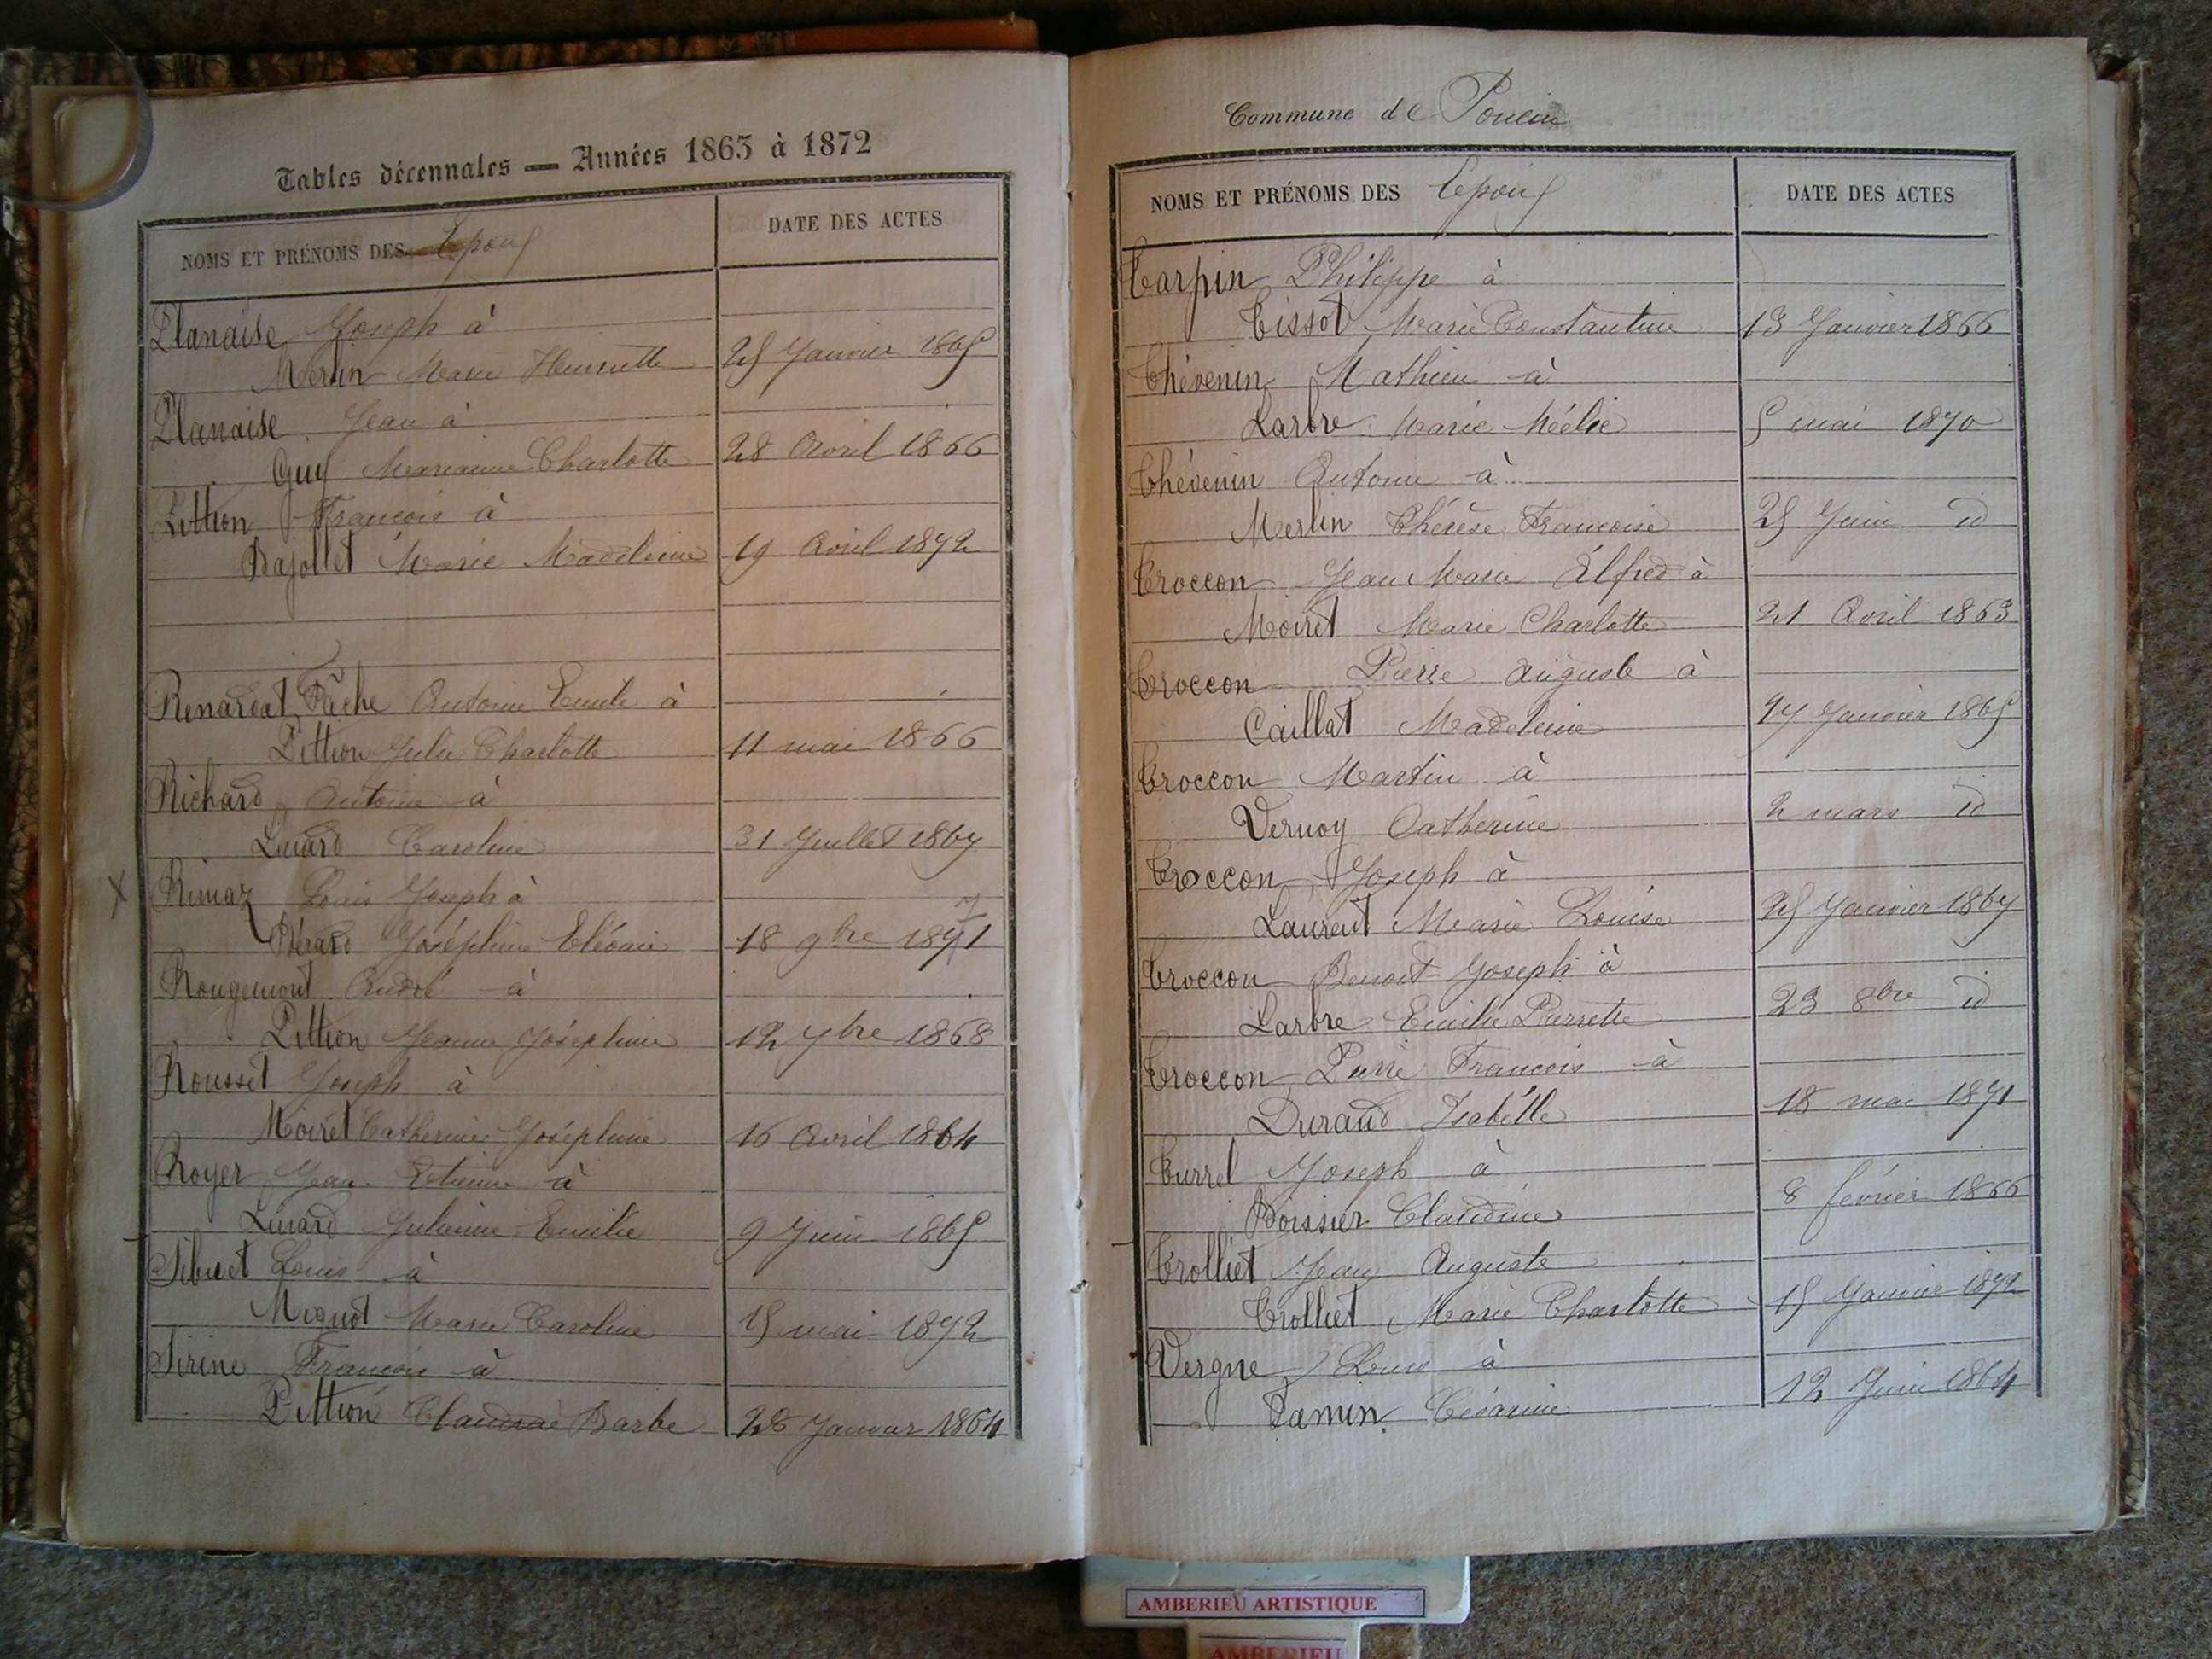 Tables décennales — Années 1863 à 1872
NOMS ET PRÉNOMS DES Epoux
DATE DES ACTES
Planaise Joseph à
Merlin Marie Henriette 25 Janvier 1865
Planaise Jean à
Guy Marianne Charlotte 28 Avril 1866
Pittion François à
Bajollet Marie Madeleine 19 Avril 1872
Renardat Fache Antoine Emile à
Pittion Julie Charlotte 11 mai 1866
Richard Antoine à
Luiard Caroline 31 Juillet 1867
X Rimaz Louis Joseph à
Pérard Joséphine Eléonie 18 9bre 1871
Rougemont André à
Pittion Jeanne Joséphine 12 7bre 1868
Rousset Joseph à
Moiret Catherine Joséphine 16 Avril 1864
Royer Jean Etienne à
Luiard Julienne Emilie 9 Juin 1865
Sibuet Louis à
Mignot Marie Caroline 15 mai 1872
Sirine François à
Pittion Claudine Barbe 28 Janvier 1864
Commune de Poncin
NOMS ET PRÉNOMS DES Epoux
DATE DES ACTES
Tarpin Philippe à
Tissot Marie Constantine 13 Janvier 1866
Thévenin Mathieu à
Larbre Marie Mélie 5 mai 1870
Thévenin Antoine à
Merlin Thérèse Françoise 25 Juin id
Troccon Jean Marie Elfred à
Moiret Marie Charlotte 21 Avril 1863
Troccon Pierre Auguste à
Caillat Madeleine 27 Janvier 1865
Troccon Martin à
Vernoy Catherine 2 mars id
Troccon Joseph à
Laurent Marie Louise 25 Janvier 1867
Troccon Benoit Joseph à
Larbre Emilie Pierrette 23 8bre id
Troccon Pierre François à
Durand Isabelle 18 mai 1871
Turrel Joseph à
Boissier Claudine 8 février 1866
Trolliet Jean Auguste
Trolliet Marie Charlotte 15 Janvier 1872
Vergne Louis à
Pamin Césarine 12 Juin 1864
AMBERIEU ARTISTIQUE
AMBERIEU